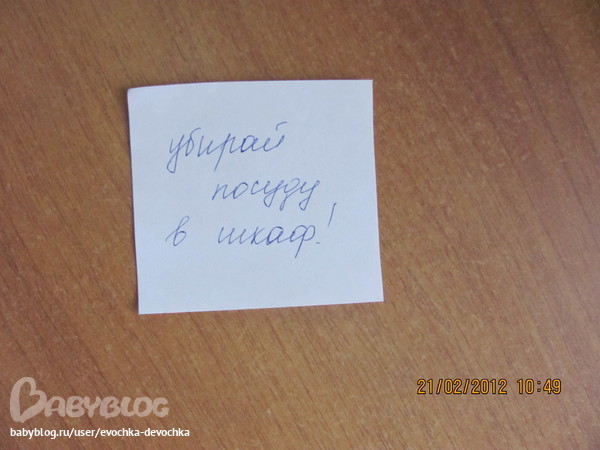 убирай
посуду
в шкаф!
21/02/2012 10:49
BABYBLOG
babyblog.ru/user/evochka-devochka